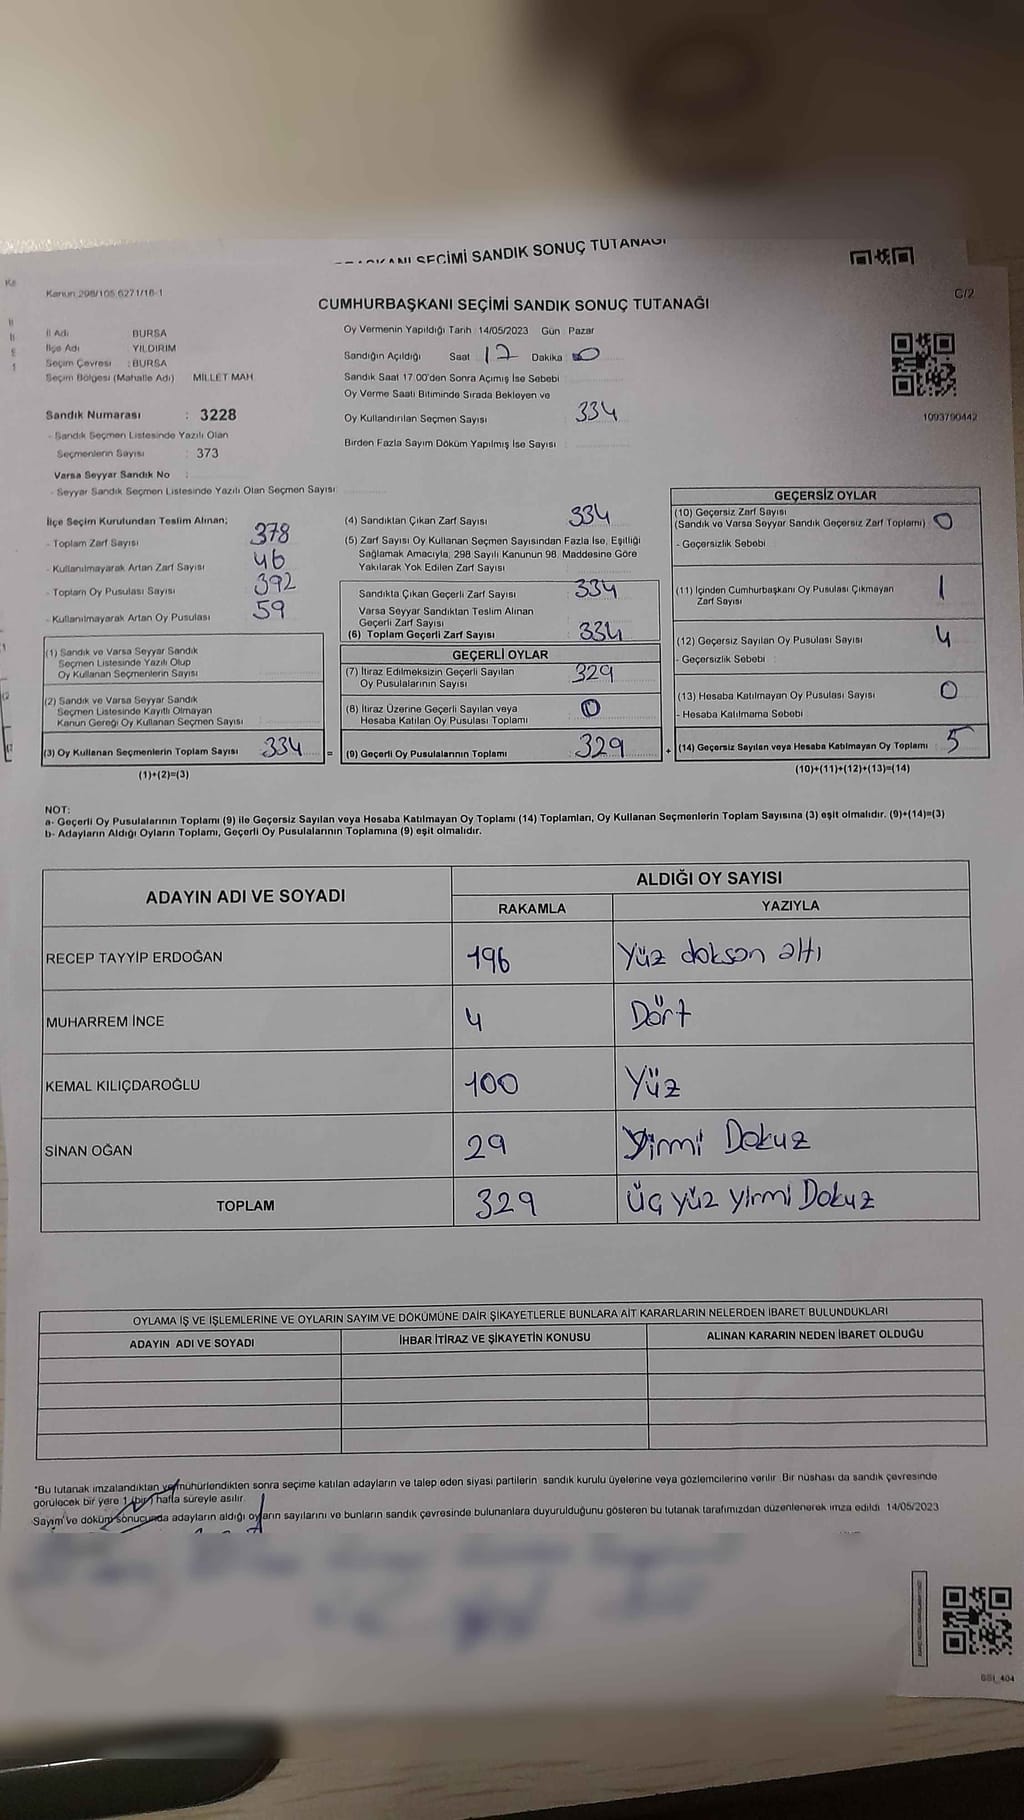 KANI SEÇİMİ SANDIK SONUÇ TUTANAĞI
Kanun 298/105,6271/16-1
C/2
CUMHURBAŞKANI SEÇİMİ SANDIK SONUÇ TUTANAĞI
İl Adı BURSA
İlçe Adı YILDIRIM
Seçim Çevresi : BURSA
Seçim Bölgesi (Mahalle Adı) MİLLET MAH.
Sandık Numarası : 3228
- Sandık Seçmen Listesinde Yazılı Olan
Seçmenlerin Sayısı : 373
Varsa Seyyar Sandık No :
- Seyyar Sandık Seçmen Listesinde Yazılı Olan Seçmen Sayısı:
Oy Vermenin Yapıldığı Tarih 14/05/2023 Gün Pazar
Sandığın Açıldığı Saat 17 Dakika
Sandık Saat 17:00'den Sonra Açımış İse Sebebi :
Oy Verme Saati Bitiminde Sırada Bekleyen ve
Oy Kullandırılan Seçmen Sayısı 334
Birden Fazla Sayım Döküm Yapılmış İse Sayısı :
1093790442
İlçe Seçim Kurulundan Teslim Alınan;
- Toplam Zarf Sayısı 378
- Kullanılmayarak Artan Zarf Sayısı 46
- Toplam Oy Pusulası Sayısı 392
- Kullanılmayarak Artan Oy Pusulası 59
(1) Sandık ve Varsa Seyyar Sandık
Seçmen Listesinde Yazılı Olup
Oy Kullanan Seçmenlerin Sayısı
(2) Sandık ve Varsa Seyyar Sandık
Seçmen Listesinde Kayıtlı Olmayan
Kanun Gereği Oy Kullanan Seçmen Sayısı
(3) Oy Kullanan Seçmenlerin Toplam Sayısı 334 =
(1)+(2)=(3)
(4) Sandıktan Çıkan Zarf Sayısı 334
(5) Zarf Sayısı Oy Kullanan Seçmen Sayısından Fazla İse, Eşitliği
Sağlamak Amacıyla, 298 Sayılı Kanunun 98. Maddesine Göre
Yakılarak Yok Edilen Zarf Sayısı
Sandıkta Çıkan Geçerli Zarf Sayısı 334
Varsa Seyyar Sandıktan Teslim Alınan
Geçerli Zarf Sayısı
(6) Toplam Geçerli Zarf Sayısı 334
GEÇERLİ OYLAR
(7) İtiraz Edilmeksizin Geçerli Sayılan
Oy Pusulalarının Sayısı 329
(8) İtiraz Üzerine Geçerli Sayılan veya
Hesaba Katılan Oy Pusulası Toplamı 0
(9) Geçerli Oy Pusulalarının Toplamı 329 +
GEÇERSİZ OYLAR
(10) Geçersiz Zarf Sayısı
(Sandık ve Varsa Seyyar Sandık Geçersiz Zarf Toplamı) 0
- Geçersizlik Sebebi
(11) İçinden Cumhurbaşkanı Oy Pusulası Çıkmayan
Zarf Sayısı 1
(12) Geçersiz Sayılan Oy Pusulası Sayısı 4
- Geçersizlik Sebebi :
(13) Hesaba Katılmayan Oy Pusulası Sayısı 0
- Hesaba Katılmama Sebebi
(14) Geçersiz Sayılan veya Hesaba Katılmayan Oy Toplamı 5
(10)+(11)+(12)+(13)=(14)
NOT:
a- Geçerli Oy Pusulalarının Toplamı (9) ile Geçersiz Sayılan veya Hesaba Katılmayan Oy Toplamı (14) Toplamları, Oy Kullanan Seçmenlerin Toplam Sayısına (3) eşit olmalıdır. (9)+(14)=(3)
b- Adayların Aldığı Oyların Toplamı, Geçerli Oy Pusulalarının Toplamına (9) eşit olmalıdır.
ADAYIN ADI VE SOYADI ALDIĞI OY SAYISI
RAKAMLA YAZIYLA
RECEP TAYYİP ERDOĞAN 196 Yüz doksan altı
MUHARREM İNCE 4 Dört
KEMAL KILIÇDAROĞLU 100 Yüz
SİNAN OĞAN 29 Yirmi Dokuz
TOPLAM 329 üç yüz yirmi Dokuz
OYLAMA İŞ VE İŞLEMLERİNE VE OYLARIN SAYIM VE DÖKÜMÜNE DAİR ŞİKAYETLERLE BUNLARA AİT KARARLARIN NELERDEN İBARET BULUNDUKLARI
ADAYIN ADI VE SOYADI İHBAR İTİRAZ VE ŞİKAYETİN KONUSU ALINAN KARARIN NEDEN İBARET OLDUĞU
*Bu tutanak imzalandıktan ve mühürlendikten sonra seçime katılan adayların ve talep eden siyasi partilerin sandık kurulu üyelerine veya gözlemcilerine verilir. Bir nüshası da sandık çevresinde
görülecek bir yere 1 (bir) hafta süreyle asılır.
Sayım ve döküm sonucunda adayların aldığı oyların sayılarını ve bunların sandık çevresinde bulunanlara duyurulduğunu gösteren bu tutanak tarafımızdan düzenlenerek imza edildi. 14/05/2023